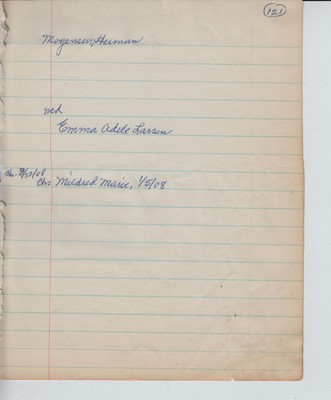 121
Mogensen, Herman
md
Emma Adele Larsen
Chr. Mildred Marie, 1/5/08